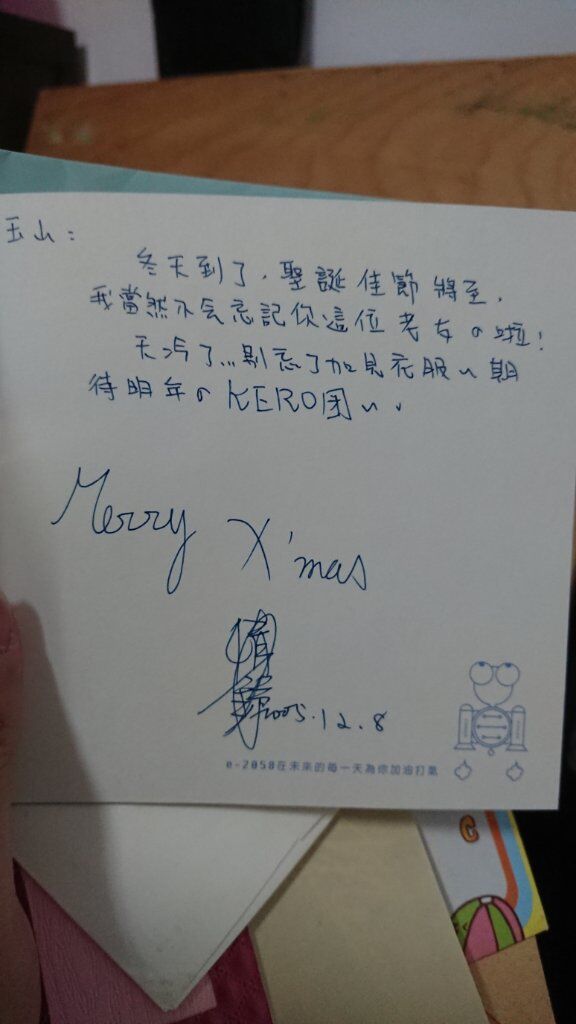 玉山：
冬天到了，聖誕佳節將至，
我當然不会忘記你這位老友の啦！
天冷了...別忘了加見衣服～期
待明年のKERO团～
Merry X'mas
2005.12.8
e-2058在未來的每一天為你加油打氣
C